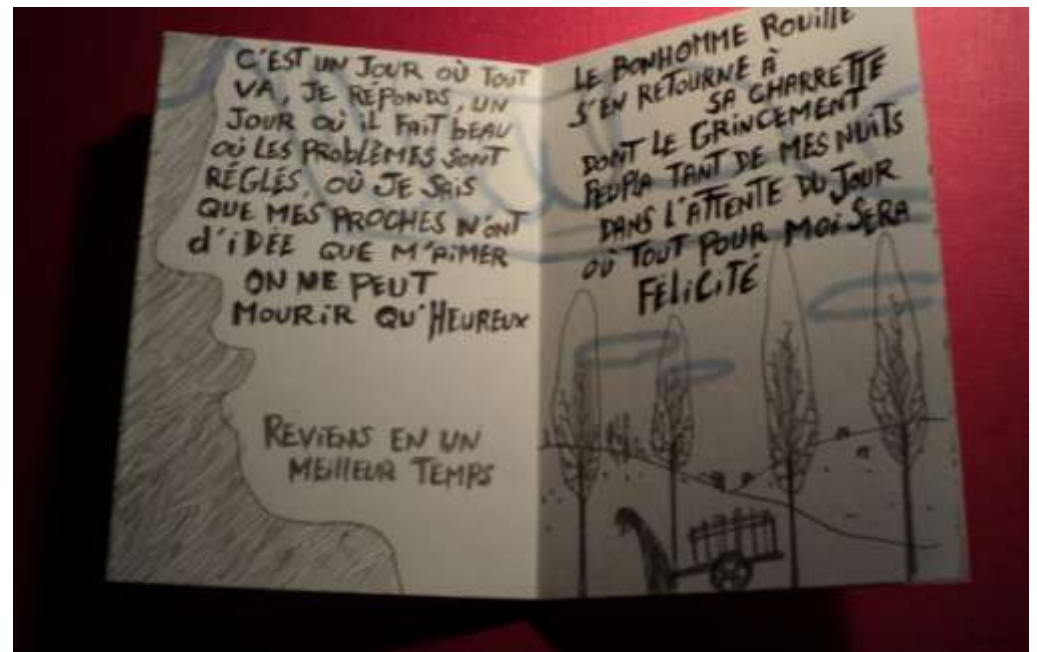 C'EST UN JOUR OÙ TOUT
VA, JE RÉPONDS, UN
JOUR OÙ iL FAiT bEAU
OÙ LES PROBLÈMES SONT
RÉGLÉS, OÙ JE SAiS
QUE MES PROCHES N'ONT
d'iDÉE QUE M'AiMER
ON NE PEUT
MOURiR QU'HEUREUX
REViENS EN UN
MEiLLEUR TEMPS
LE BONHOMME ROUiLLE
S'EN RETOURNE À
SA CHARRETTE
DONT LE GRiNCEMENT
PEUPLA TANT DE MES NUiTS
DANS L'ATTENTE DU JOUR
OÙ TOUT POUR MOi SERA
FÉLiCiTÉ